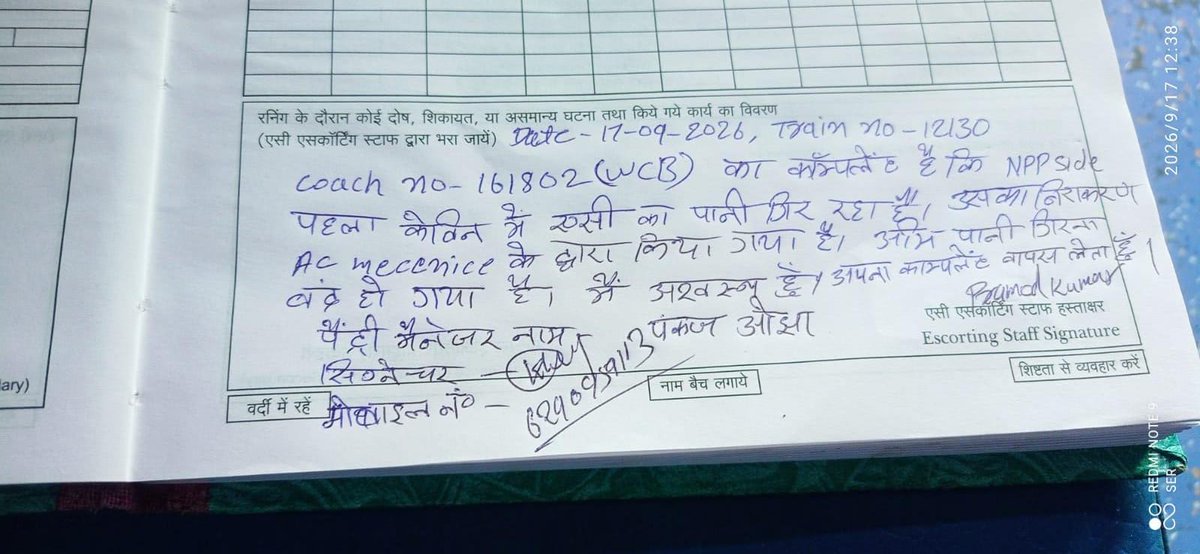 रनिंग के दौरान कोई दोष, शिकायत, या असमान्य घटना तथा किये गये कार्य का विवरण
(एसी एसकॉर्टिंग स्टाफ द्वारा भरा जायें) Date - 17-09-2026, Train no - 12130
coach no - 161802 (WCB) का कॉम्पलेंट है कि NPP side
पहला केविन में एसी का पानी गिर रहा है। उसका निराकरण
AC mecenice के द्वारा किया गया है। पानी गिरना
बंद हो गया है। मैं हूँ। अपना काम्पलेंट वापस लेता हूँ।
Pramod Kumar
एसी एसकॉर्टिंग स्टाफ हस्ताक्षर
Escorting Staff Signature
पैंट्री मैनेजर नाम पंकज ओझा
सिग्नेचर -
मोबाइल नं० - 6290939113
वर्दी में रहें
नाम बैच लगाये
शिष्टता से व्यवहार करें
ary)
2026/9/17 12:38
REDMI NOTE 9
SER